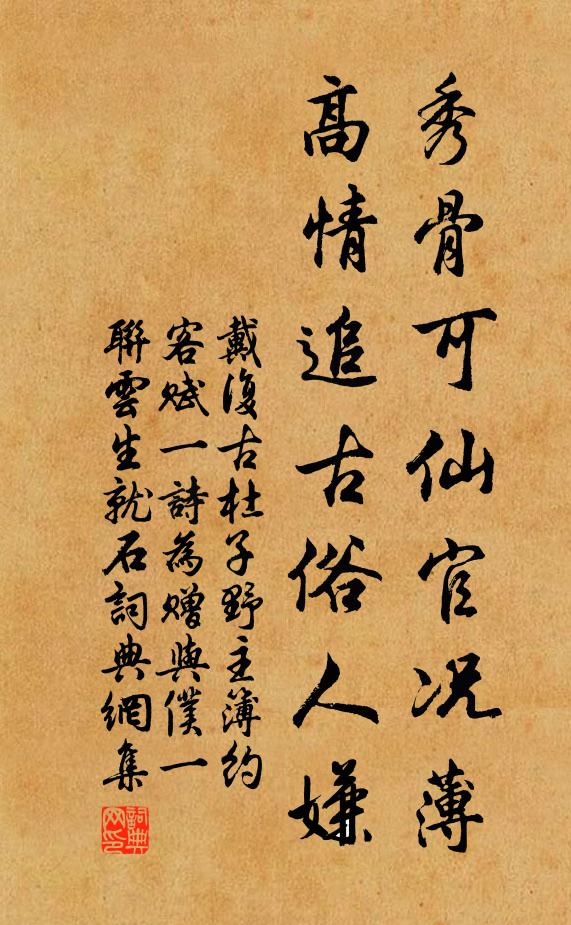 秀骨可仙官况薄
高情追古俗人嫌
戴復古杜子野主簿約
客賦一詩為贈與僕一
聯雲生就石詞典網集
詞典网印